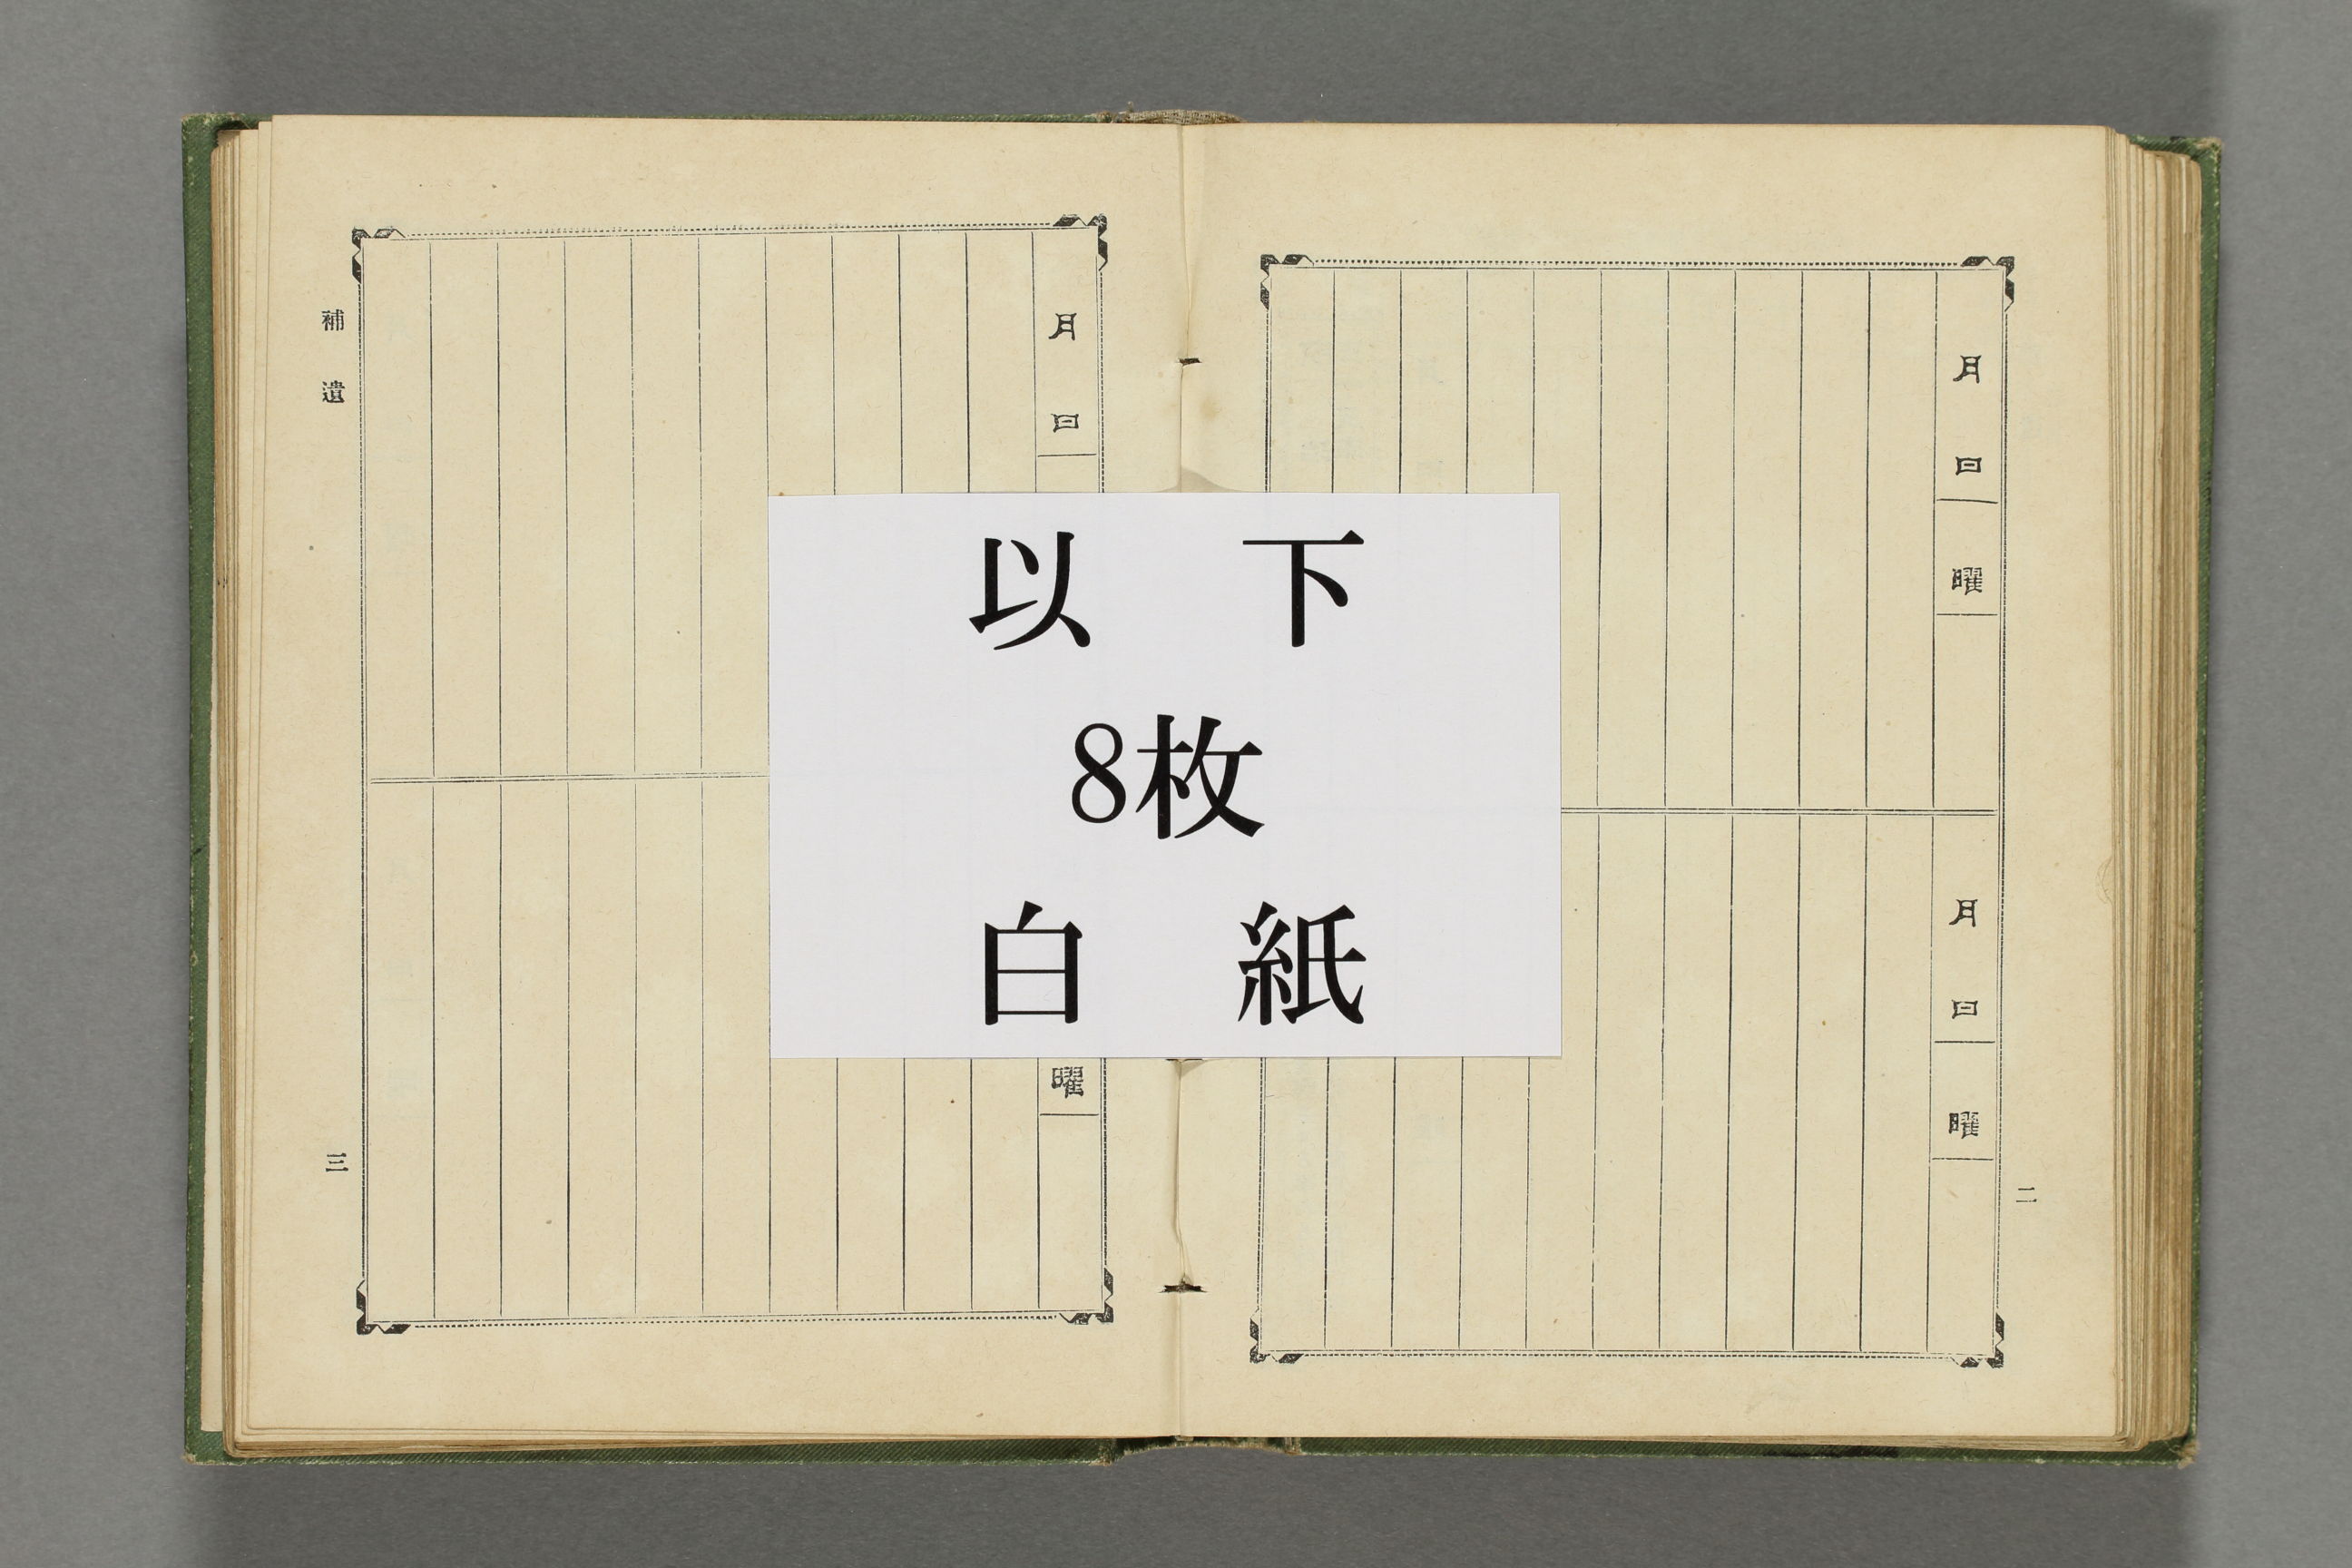 月 日 曜
月 日 曜
二
以 下
8枚
白 紙
月 日
曜
補 遺
三